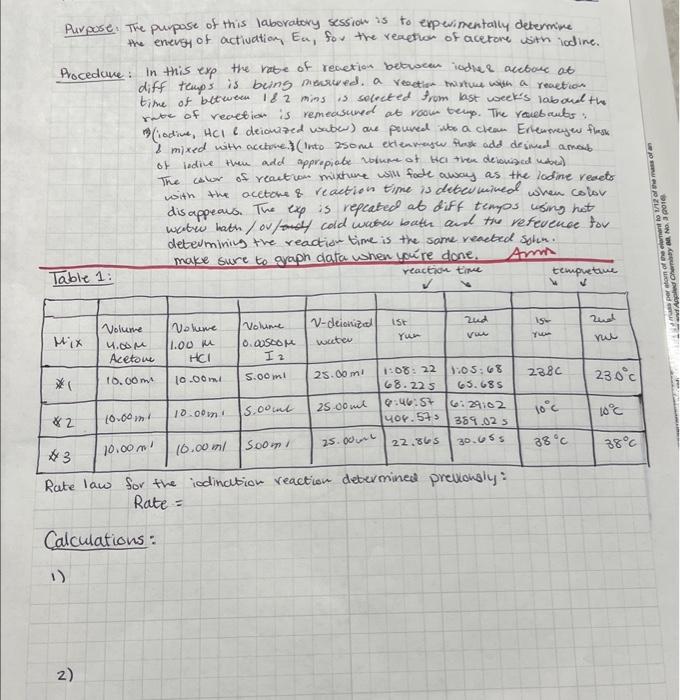 Purpose: The purpose of this laboratory session is to experimentally determine
the energy of activation, Ea, for the reaction of acetone with iodine.
Procedure: In this exp the rate of reaction between iodine & acetone at
diff temps is being measured. a reaction mixture with a reaction
time of between 1 & 2 mins is selected from last week's lab and the
rate of reaction is remeasured at room temp. The reactants:
(iodine, HCl & deionized water) are poured into a clean Erlenmeyer flask
& mixed with acetone. (Into 250ml erlenmeyer flask add desired amout
of iodine then add appropiate volume of HCl then deionized water)
The color of reaction mixture will fade away as the iodine reacts
with the acetone & reaction time is determined when color
disappears. The exp is repeated at diff temps using hot
water bath / or / cold water bath and the reference for
determining the reaction time is the same reacted soln.
make sure to graph data when you're done.
Table 1:
reaction time tempreture
Mix Volume 4.00M Acetone Volume 1.00 M HCl Volume 0.00500M I2 V-deionized water 1st run 2nd run 1st run 2nd run
#1 10.00ml 10.00ml 5.00ml 25.00ml 1:08:22 68.22s 1:05:68 65.68s 23.8C 23.0°C
#2 10.00ml 10.00ml 5.00ml 25.00ml 6:46:57 406.57s 6:29:02 389.02s 10°C 10°C
#3 10.00ml 10.00ml 5.00ml 25.00ml 22.86s 30.65s 38°C 38°C
Rate law for the iodination reaction determined previously:
Rate =
Calculations:
1)
2)
mass per atom of the element to 1/12 of the mass of an
and Applied Chemistry 88, No. 3 (2016)